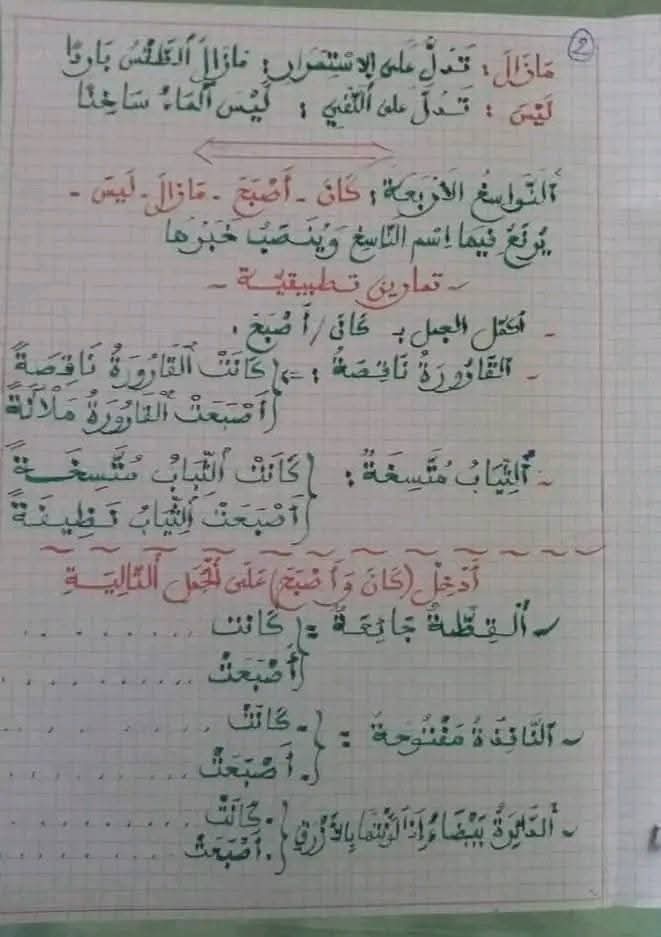 2
مَازَالَ : تَدُلُّ على الاسْتِمْرارِ : مَازَالَ الطَّقْسُ بَارِدًا
لَيْسَ : تَدُلُّ على النَّفْيِ : لَيْسَ الْمَاءُ سَاخِنًا
النَّواسِخُ الأرْبَعَةُ : كَانَ - أَصْبَحَ - مَازَالَ - لَيْسَ -
يُرْفَعُ فِيهَا اِسْم النَّاسِخِ وَيُنْصَبُ خَبَرُهَا
- تمارين تطبيقيّة -
- أكمل الجمل بـ كان / أَصْبَحَ :
- القَارُورَةُ نَاقِصَةٌ : => كَانَتْ القَارُورَةُ نَاقِصَةً
أَصْبَحَتْ القَارُورَةُ مَلْآنَةً
- الثِّيَابُ مُتَّسِخَةٌ : كَانَتْ الثِّيَابُ مُتَّسِخَةً
أَصْبَحَتْ الثِّيَابُ نَظِيفَةً
أَدْخِلْ (كَانَ وَأَصْبَحَ) عَلَى الْجُمَلِ التَّالِيَةِ
- الْقِطَّةُ جَائِعَةٌ = كَانَتْ . . . . . . . .
أَصْبَحَتْ . . . . . . . .
- النَّافِذَةُ مَفْتُوحَةٌ = . كَانَتْ . . . . . . . .
. أَصْبَحَتْ . . . . . . . .
- الدَّائِرَةُ بَيْضَاءُ إِذَا لَوَّنْتُهَا بِالأَزْرَقِ . كَانَتْ . . . . . . . .
. أَصْبَحَتْ . . . . . . . .